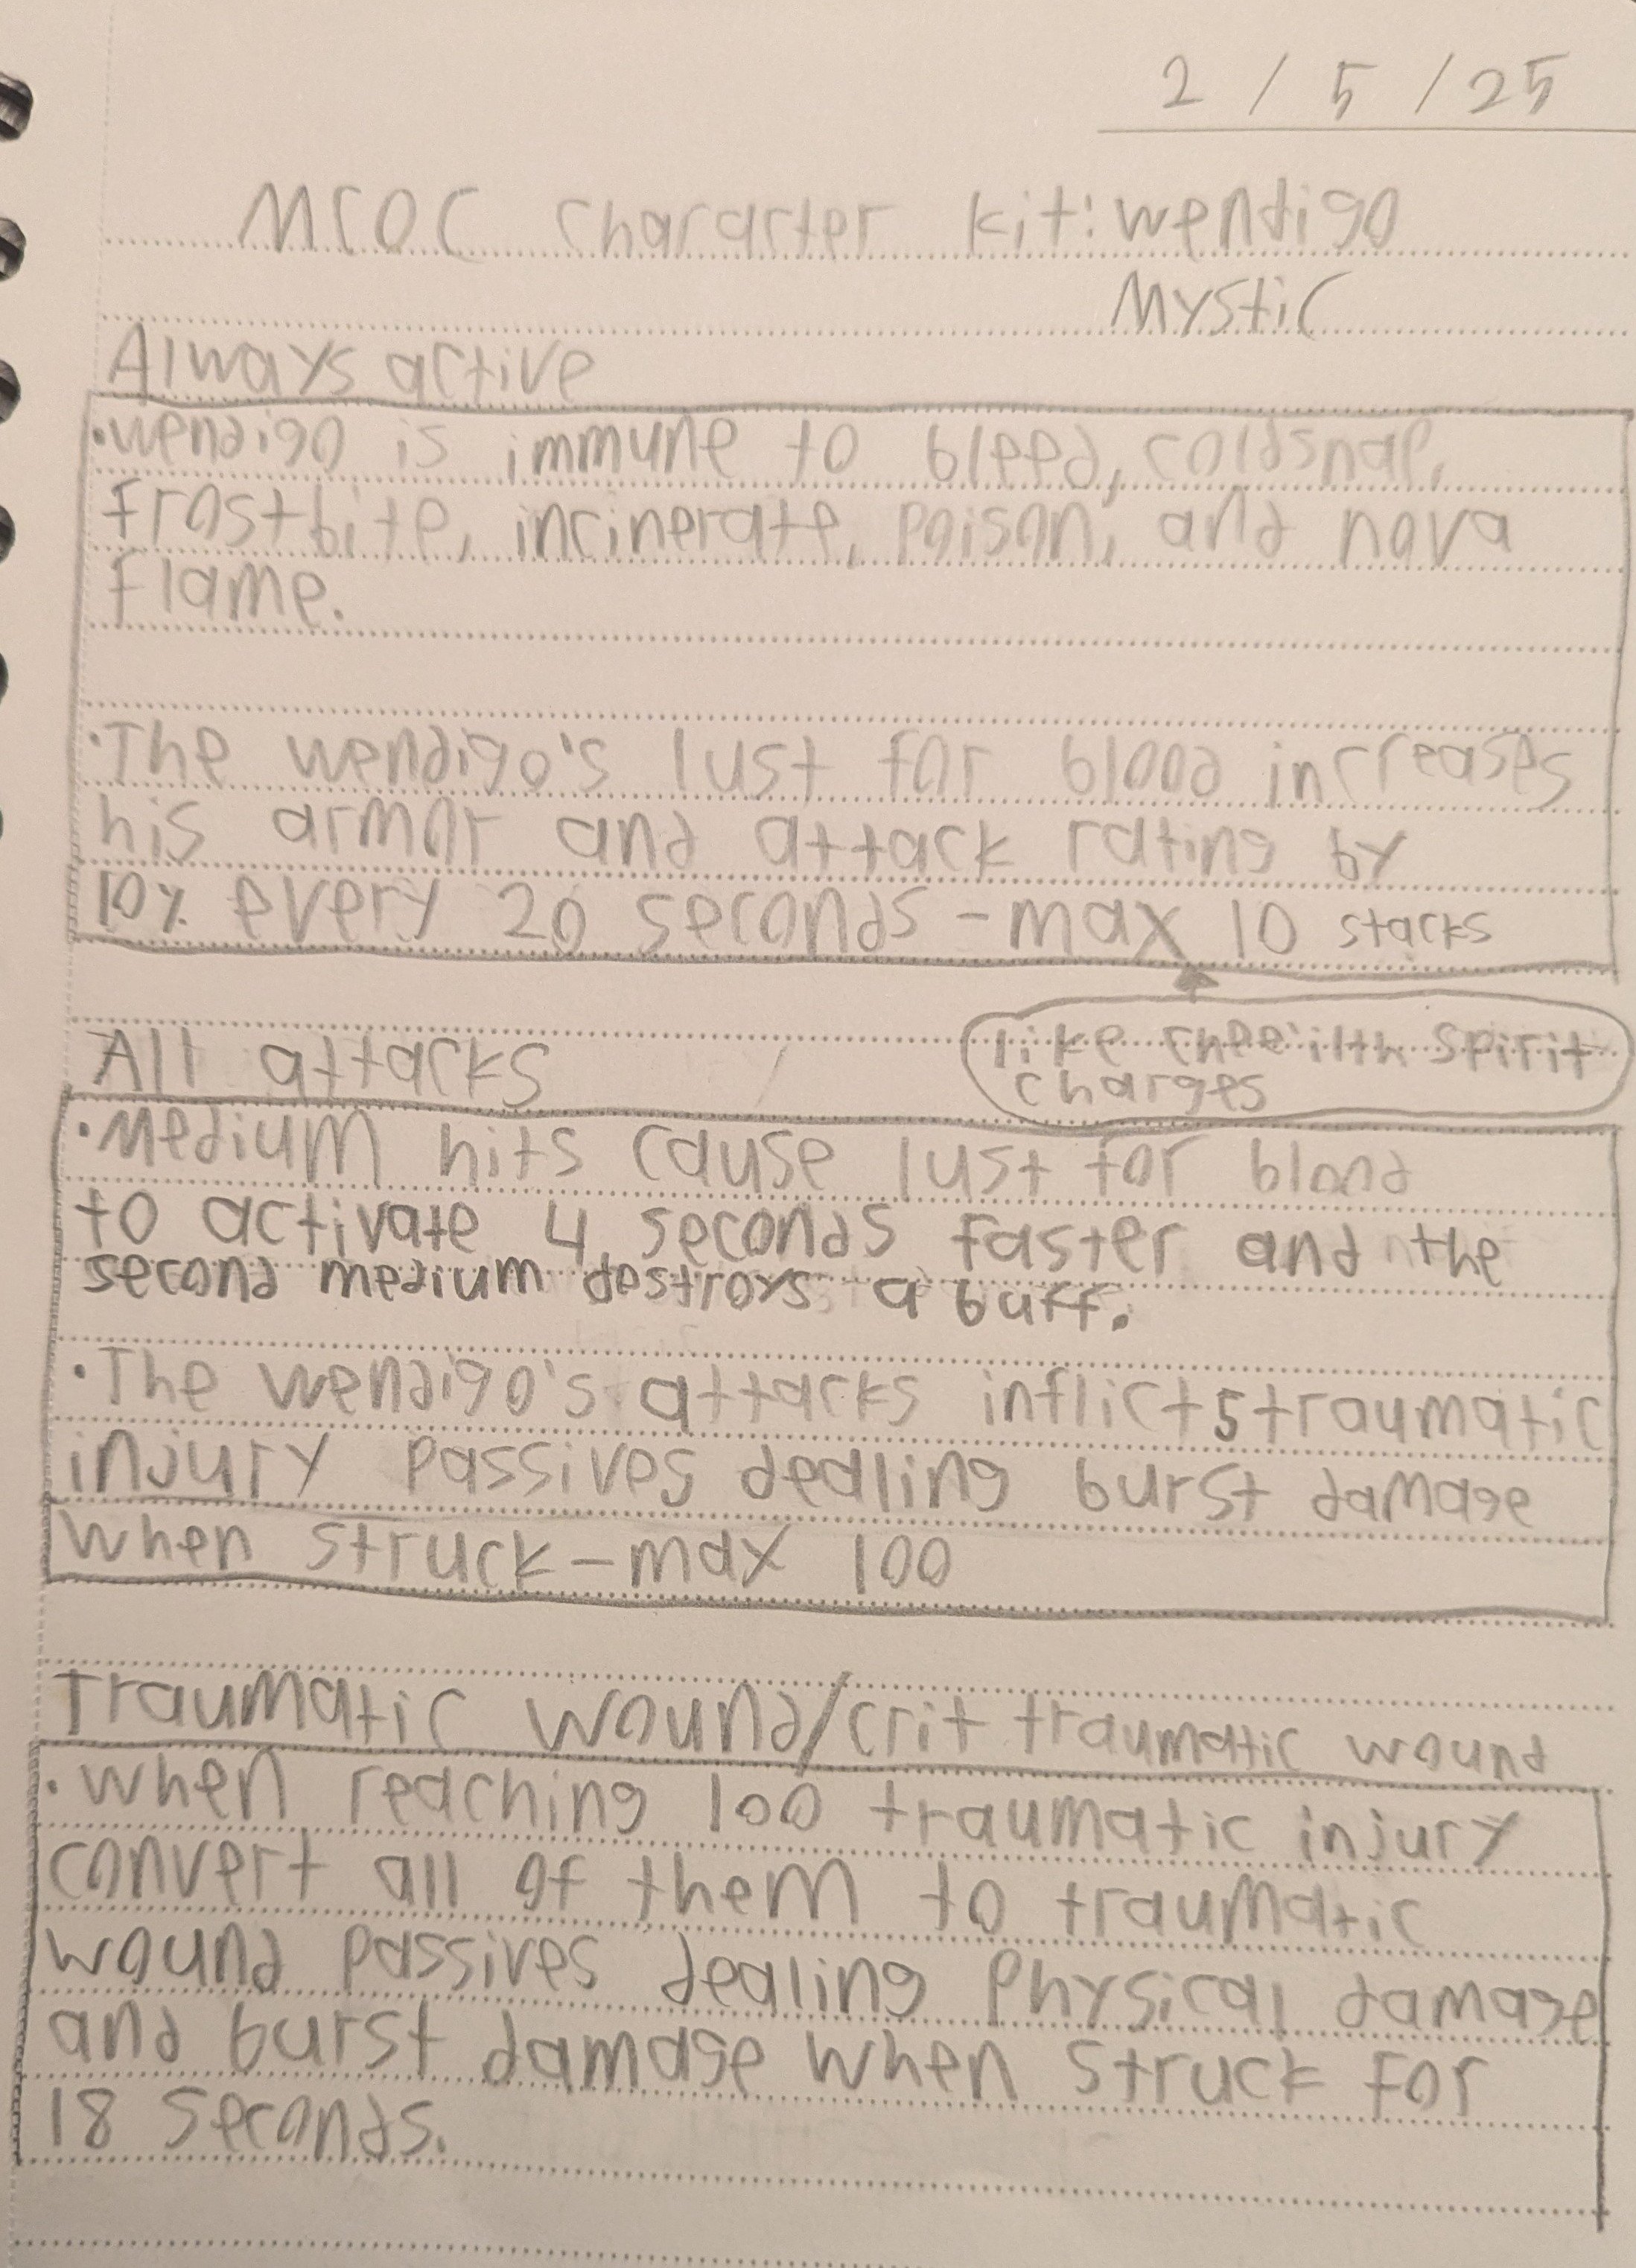 2 / 5 / 25
MCOC character kit: wendigo
Mystic
Always active
• wendigo is immune to bleed, coldsnap,
frostbite, incinerate, poison, and nova
flame.
• The wendigo's lust for blood increases
his armor and attack rating by
10% every 20 seconds - max 10 stacks
like chee'ilth spirit
charges
All attacks
• Medium hits cause lust for blood
to activate 4 seconds faster and the
second medium destroys a buff.
• The wendigo's attacks inflict 5 traumatic
injury passives dealing burst damage
when struck - max 100
Traumatic wound/crit traumatic wound
• when reaching 100 traumatic injury
convert all of them to traumatic
wound passives dealing physical damage
and burst damage when struck for
18 seconds.